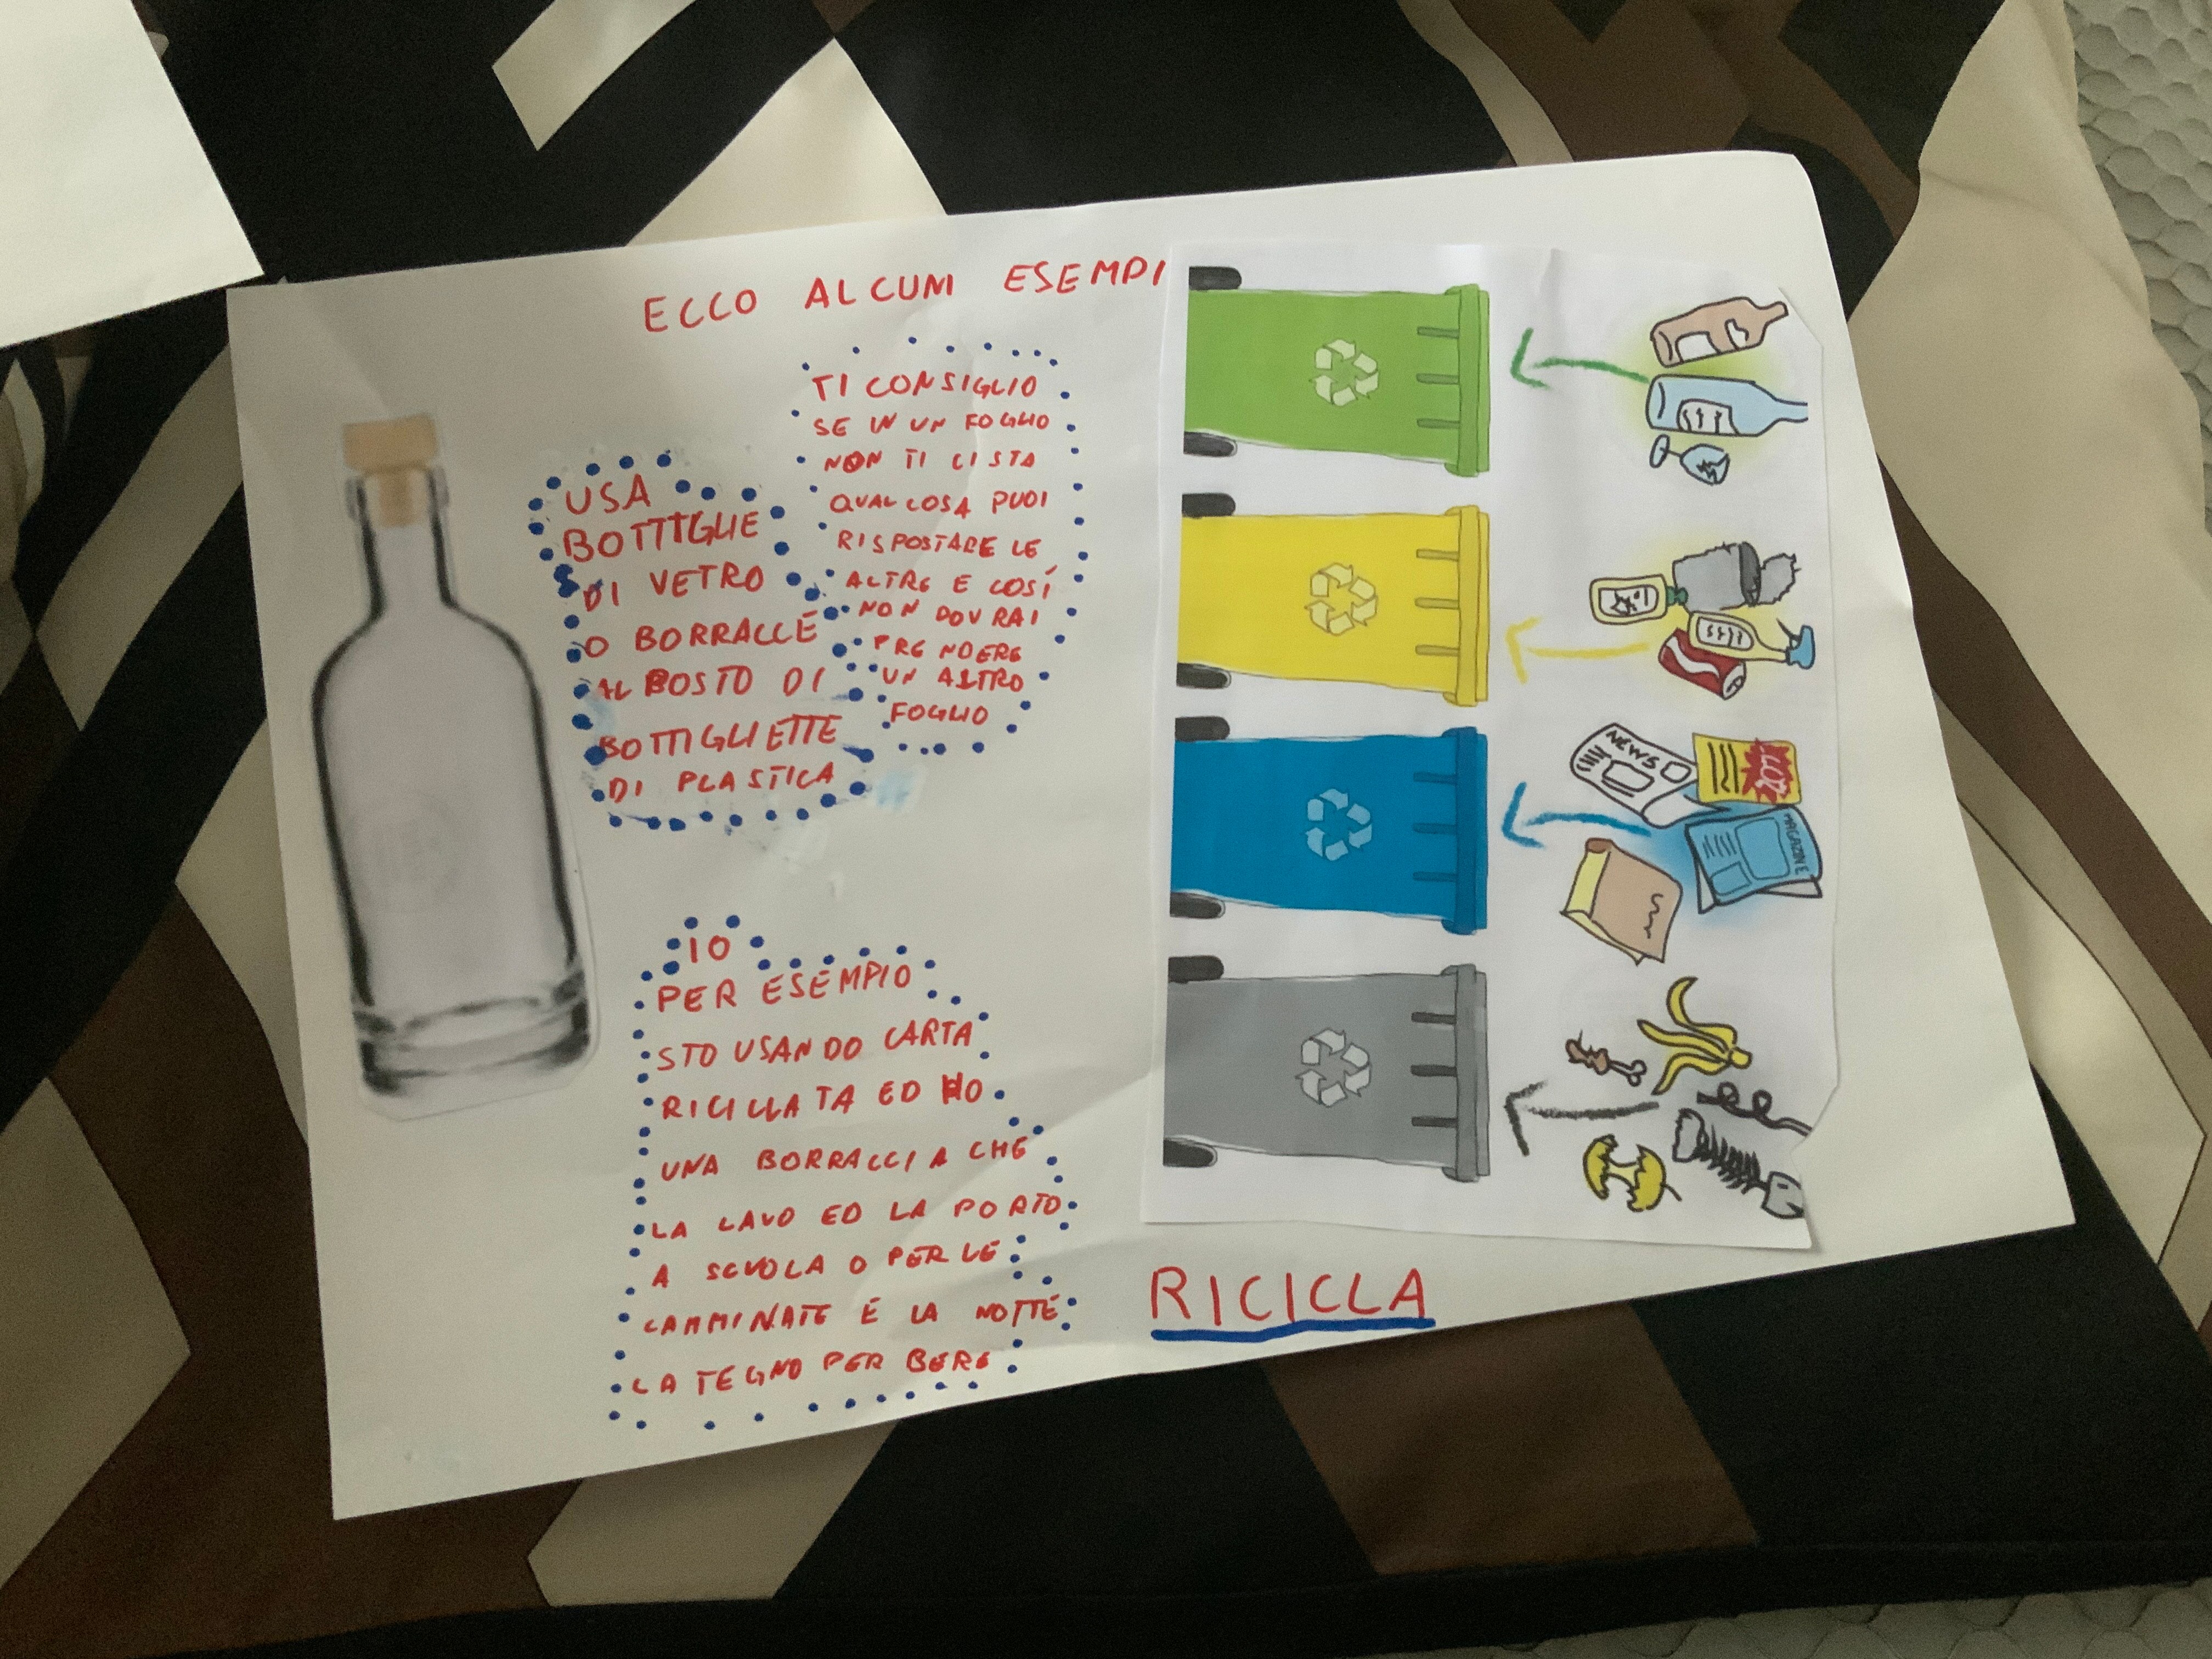 ECCO ALCUNI ESEMPI
TI CONSIGLIO
SE IN UN FOGLIO
NON TI CI STA
QUALCOSA PUOI
RISPOSTARE LE
ALTRE E COSÍ
NON DOVRAI
PRENDERE
UN ALTRO
FOGLIO
USA
BOTTIGLIE
DI VETRO
O BORRACCE
AL BOSTO DI
BOTTIGLIETTE
DI PLASTICA
IO
PER ESEMPIO
STO USANDO CARTA
RICICLATA ED HO
UNA BORRACCIA CHE
LA LAVO ED LA PORTO
A SCUOLA O PER LE
CAMMINATE E LA NOTTE
LA TEGNO PER BERE
NEWS
MAGAZINE
RICICLA